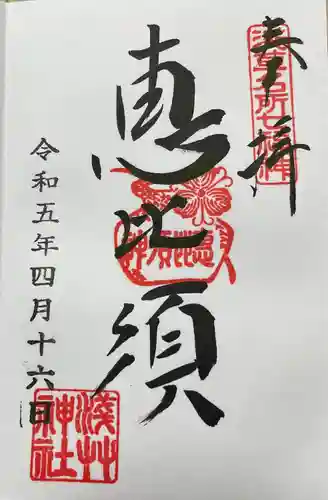 奉拝
浅草名所七福神
恵比須
恵比須神
令和五年四月十六日
浅草神社